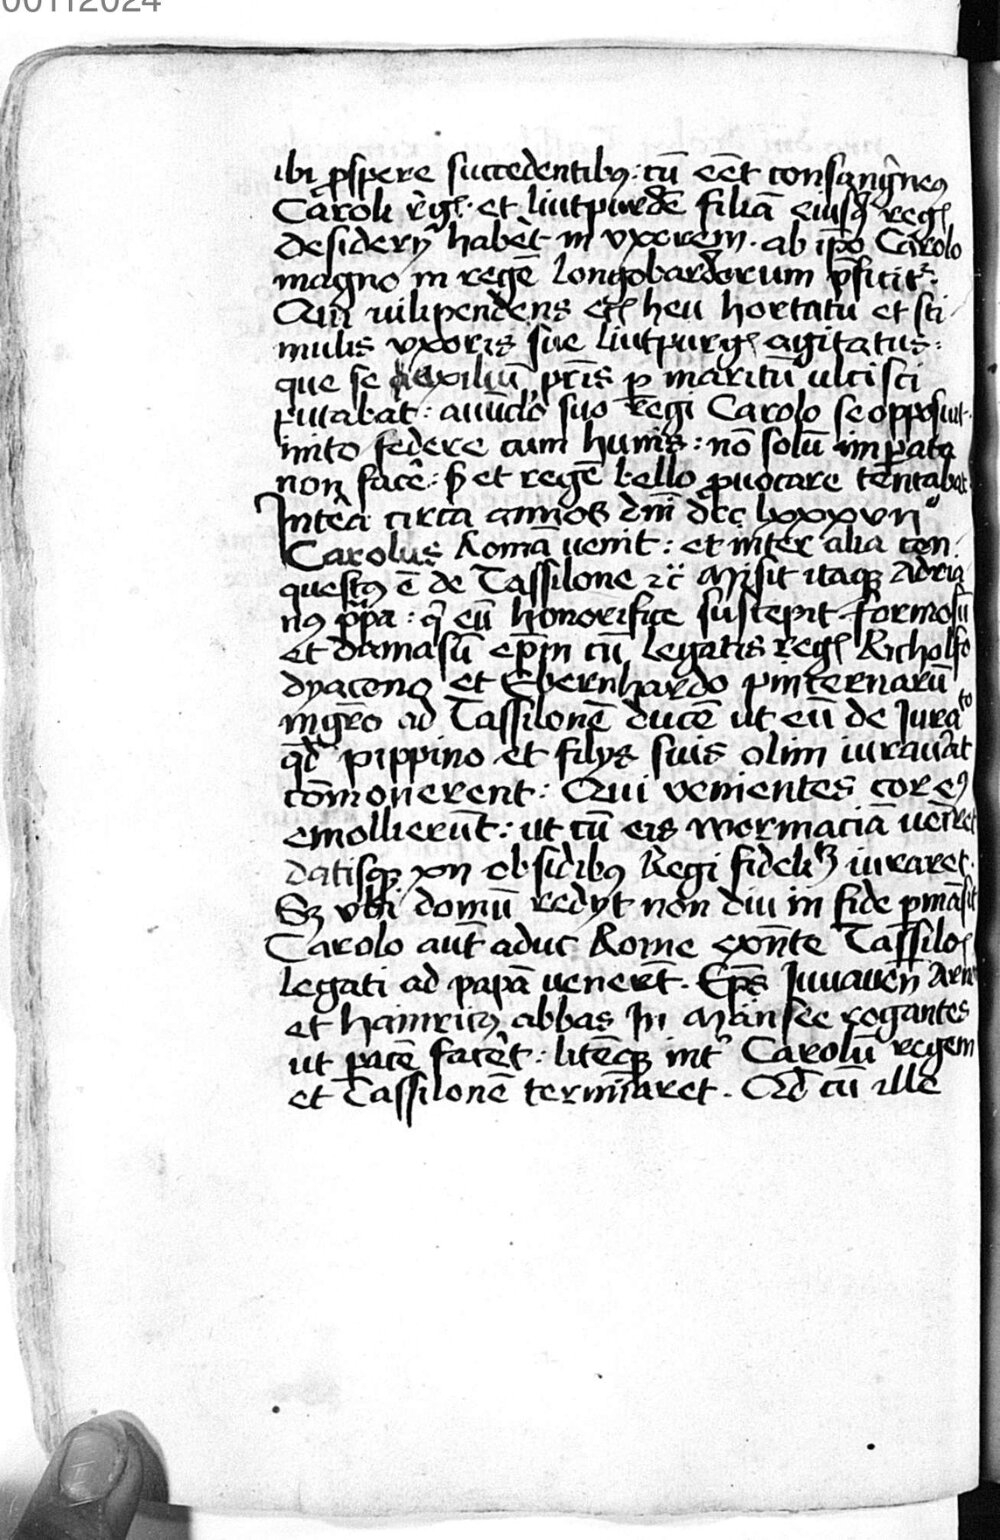 00112024
ibi ꝓspere succedentibꝰ : cū eēt consangⁱneꝰ
Caroli r̄gꝭ · et liutpurdē filiā eiusꝗ regꝭ
desiderÿ habēt in vxorem · ab ip̄o Carolo
magno in regē longobardorum p̄ficit᷑ :
Qui uilipendens heu hortatu et sti
mulis vxoris sue liutpurgꝭ agitatus :
que se exiliū pr̄is ꝑ maritū ulcisci
putabat : auūclo suo Regi Carolo se opposuit ·
inito federe cum hunis : nō solū imꝑata
non facē : s̄ et regē bello ꝓuocare tentabat
Interea circa annos dn̄i dcc lxxxvii
Carolus Romā uenit : et inter alia con
questꝰ ē de Tassilone ⁊c̄ Misit itaqꝫ Adria
nꝰ pp̄a : qͥ eū honorifice suscepit formosū
et damasū ep̄m cū legatis regꝭ Richolfo
dyacono et Ebernhardo pincernarū
mgr̄o ad Tassilonē ducē ut eū de Iura
to
qd̄ pippino et filÿs suis olim iurauāt
cōmonerent : Qui uenientes cor eꝰ
emollierūt : ut cū eis wormaciā ueīret
datisqꝫ xii obsidibꝰ Regi fidelit᷑ iuraret ·
Sꝫ vbi domū redÿt non diu in fide ꝑmāsit
Carolo aut̄ aduc Rome exn̄te Tassilōꝭ
legati ad papā uenerūt · Ep̄s Iuuauen̄ Arn
et hainricꝰ abbas In Mānsee rogantes
ut pacē facēt : litēqꝫ int᷑ Carolū regem
et Tassilonē terminaret · Qd̄ cū ille